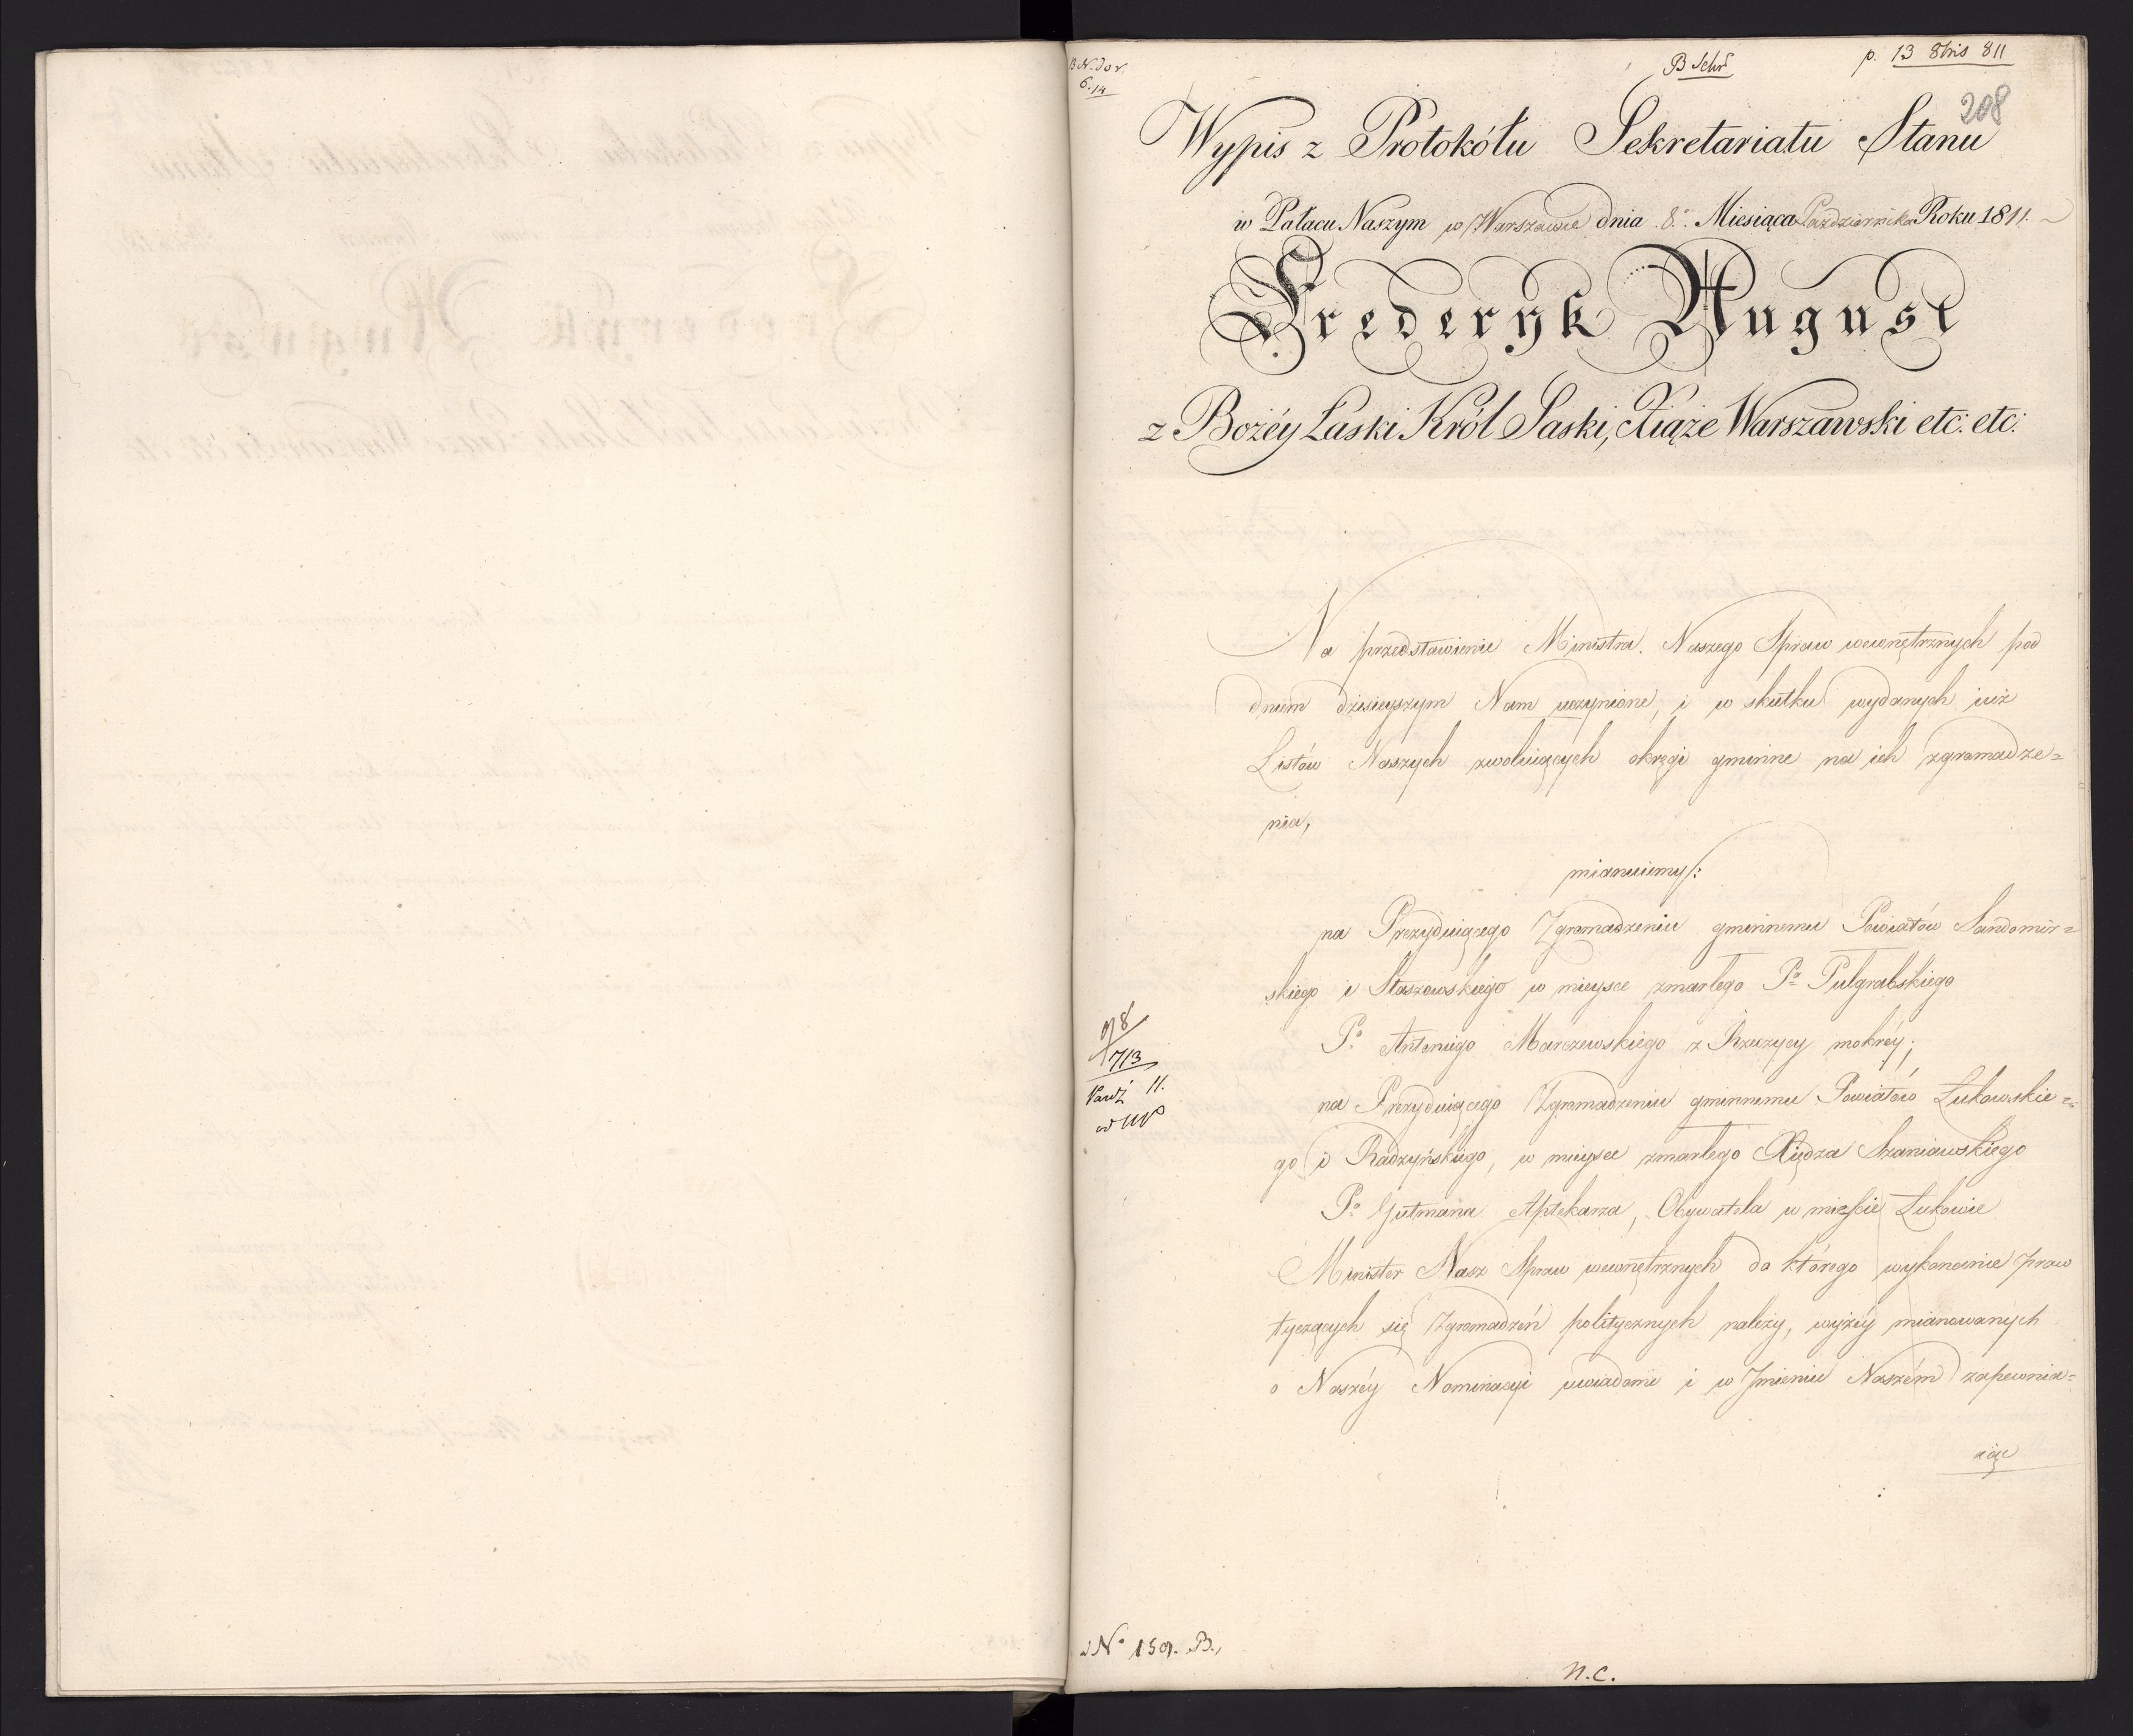 B Sekr
p. 13 8bris 811
6.14
208
Wypis z Protokółu Sekretariatu Stanu
w Pałacu Naszym w Warszawie dnia 8º Miesiąca Października Roku 1811.
Frederyk August
z Bożéy Łaski Król Saski, Xiąże Warszawski etc: etc:
Na przedstawienie Ministra Naszego Spraw wewnętrznych pod
dniem dzisieyszym Nam uczynione, i w skutku wydanych iuż
Listów Naszych zwołuiących okręgi gminne na ich zgromadze=
nia,
mianuiemy:
na Prezyduiącego Zgromadzeniu gminnemu Powiatów Sandomir=
skiego i Staszowskiego w mieysce zmarłego Pª Pułgrabskiego
Pª Antoniego Marczewskiego z Rzeczycy mokréy;
na Prezyduiącego Zgromadzeniu gminnemu Powiatów Łukowskie=
go i Radzyńskiego, w mieysce zmarłego Xiędza Szaniawskiego
Pª Gutmana Aptekarza, Obywatela w mieście Łukowie
Minister Nasz Spraw wewnętrznych do którego wykonanie praw
tyczących się Zgromadzeń politycznych należy, wyżéy mianowanych
o Naszéy Nominacyi uwiadomi i w Imieniu Naszém zapewnia=
iąc
98
713
Paźdź 11.
N° 159. B.
n.c.